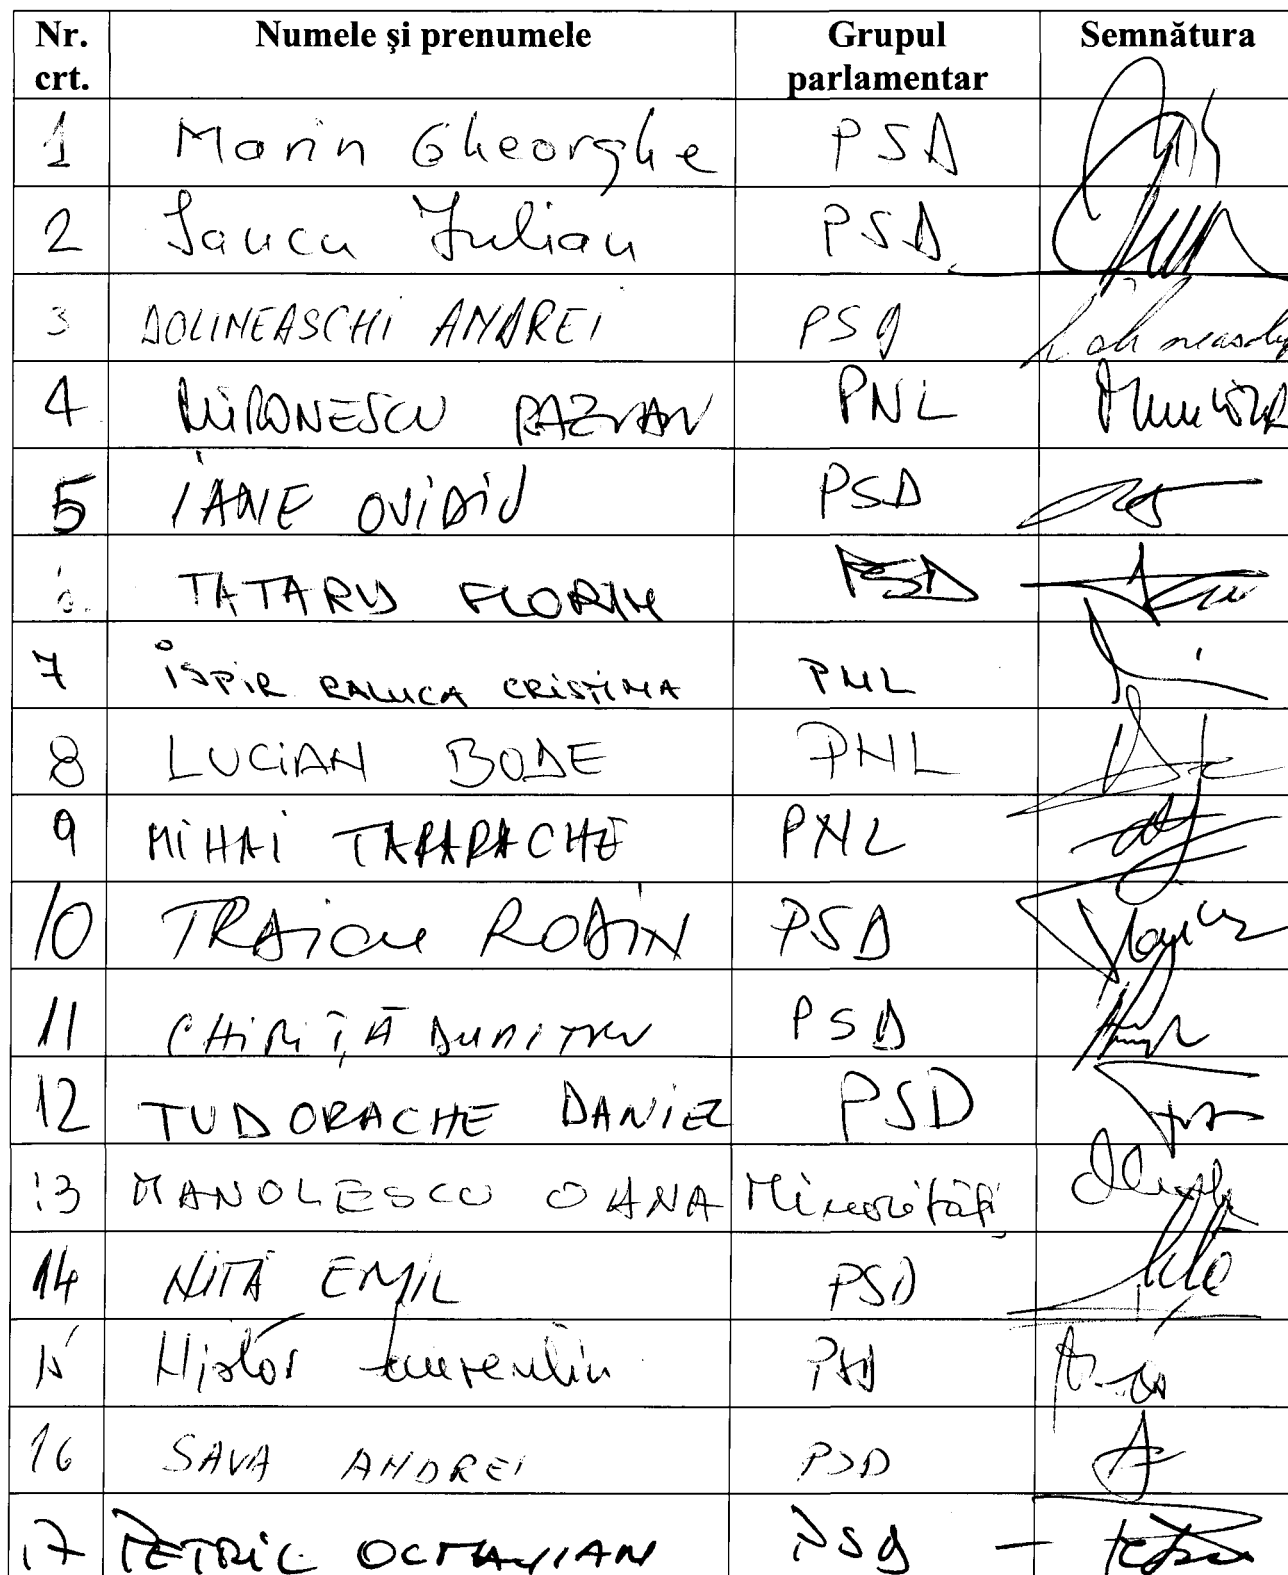 Nr. crt. Numele și prenumele Grupul parlamentar Semnătura
1 Marin Gheorghe PSD
2 Iancu Iulian PSD
3 DOLINEASCHI ANDREI PSD
4 MIRONESCU RAZVAN PNL
5 IANE OVIDIU PSD
6. TATARU FLORIN PSD
7 ISPIR RALUCA CRISTINA PNL
8 LUCIAN BODE PNL
9 MIHAI TARARACHE PNL
10 TRAicu RODIN PSD
11 CHIRIȚĂ DUMITRU PSD
12 TUDORACHE DANIEL PSD
13 MANOLESCU OANA Minorități
14 NITĂ EMIL PSD
15 Nistor Laurentiu PSD
16 SAVA ANDREI PSD
17 PETRIC OCTAVIAN PSD